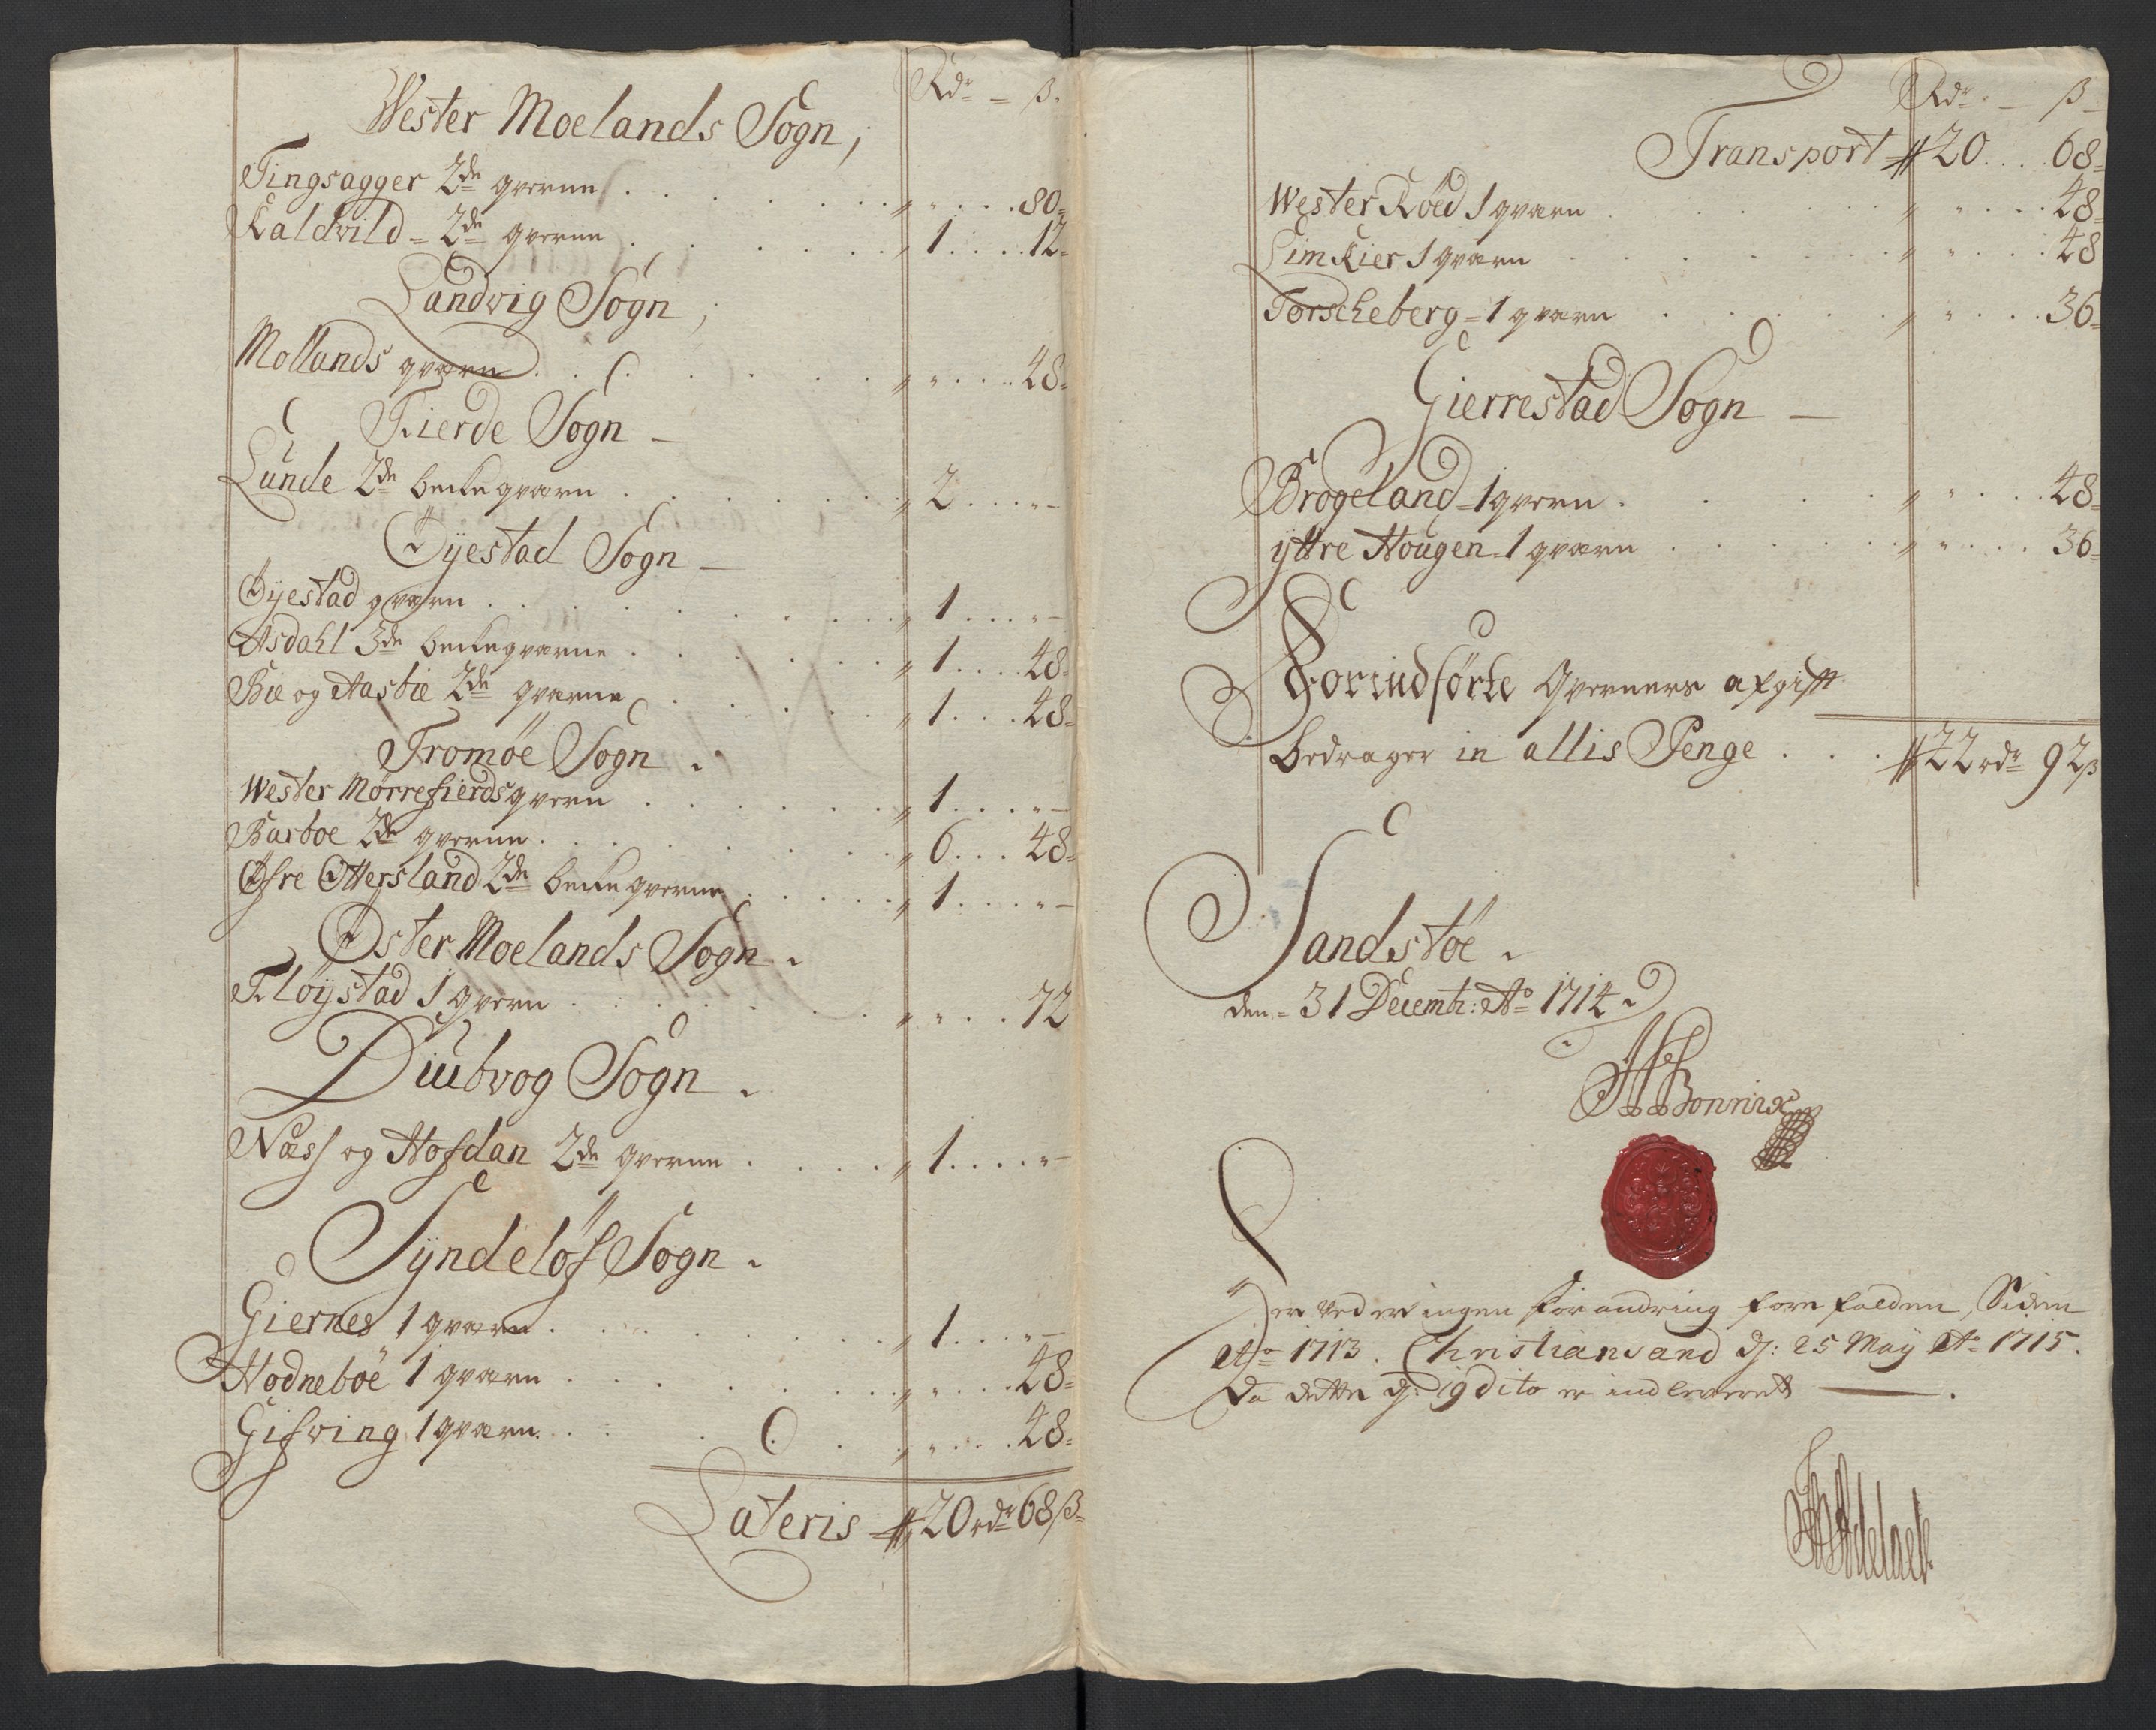 Rdr = β.
Wester Moelands Sogn,
Tingsagger 2de qverne . . . . . . . " " . . . . 80=
Kaldvild = 2de qverne . . . . . . " 1 . . . . 12=
Landvig Sogn,
Mollands qvarn . . . . . . . " " . . . . 48=
Fierde Sogn –
Lunde 2de beckeqvarn . . . . . . " 2 . . . " –
Øyestad Sogn –
Øyestad qvarn . . . . . . . . " 1 . . . " –
Asdahl 3de beckeqvarne . . . . . . " 1 . . . . 48=
Bie og Aasbie 2de qvarne . . . . . " 1 . . . 48=
Tromøe Sogn .
Wester Mørrefierds qvern . . . . . . " 1 . . . " –
Barboe 2de qverne . . . . . . . . " 6 . . . 48=
Øfre Ottersland 2de beckeqverne . . . . . " 1 . . . " –
Øster Moelands Sogn .
Fløystad 1 qvern . . . . . . . " " . . . 72
Diübvog Sogn .
Næss og Hofdan 2de qverne . . . . . " 1 . . . . " –
Syndeløf Sogn .
Giernes 1 qvarn . . . . . . . . " 1 . . . " –
Hodnebøe 1 qvarn . . . . . . . . " " . . . . 48=
Gifving 1 qvarn . . . . . . " " . . . . 48=
Lateris = 20 rdr 68 β=
Rdr . – β –
Transport = 20 . . . . 68=
Wester Røed 1 qvarn . . . . . . " " . . . . 48=
Limkier 1 qvarn . . . . . . " " . . . . 48
Torscheberg = 1 qvarn . . . . . . " " . . . . 36=
Gierrestad Sogn –
Brogeland = 1 qvern . . . . . " " . . . . 48=
ÿttre Hougen = 1 qvarn . . . . . . " " . . . . 36=
Forindførte Qverners afgift
bedrager in allis Penge . . . 22 rdr 92 β
Sandstøe .
den = 31 Decembr: Ao 1714
Her ved er ingen forandring forefalden, Siden
Ao 1713. Christiansand d: 25 Maÿ Ao 1715.
da dette d: 19 dito er indleveret — .